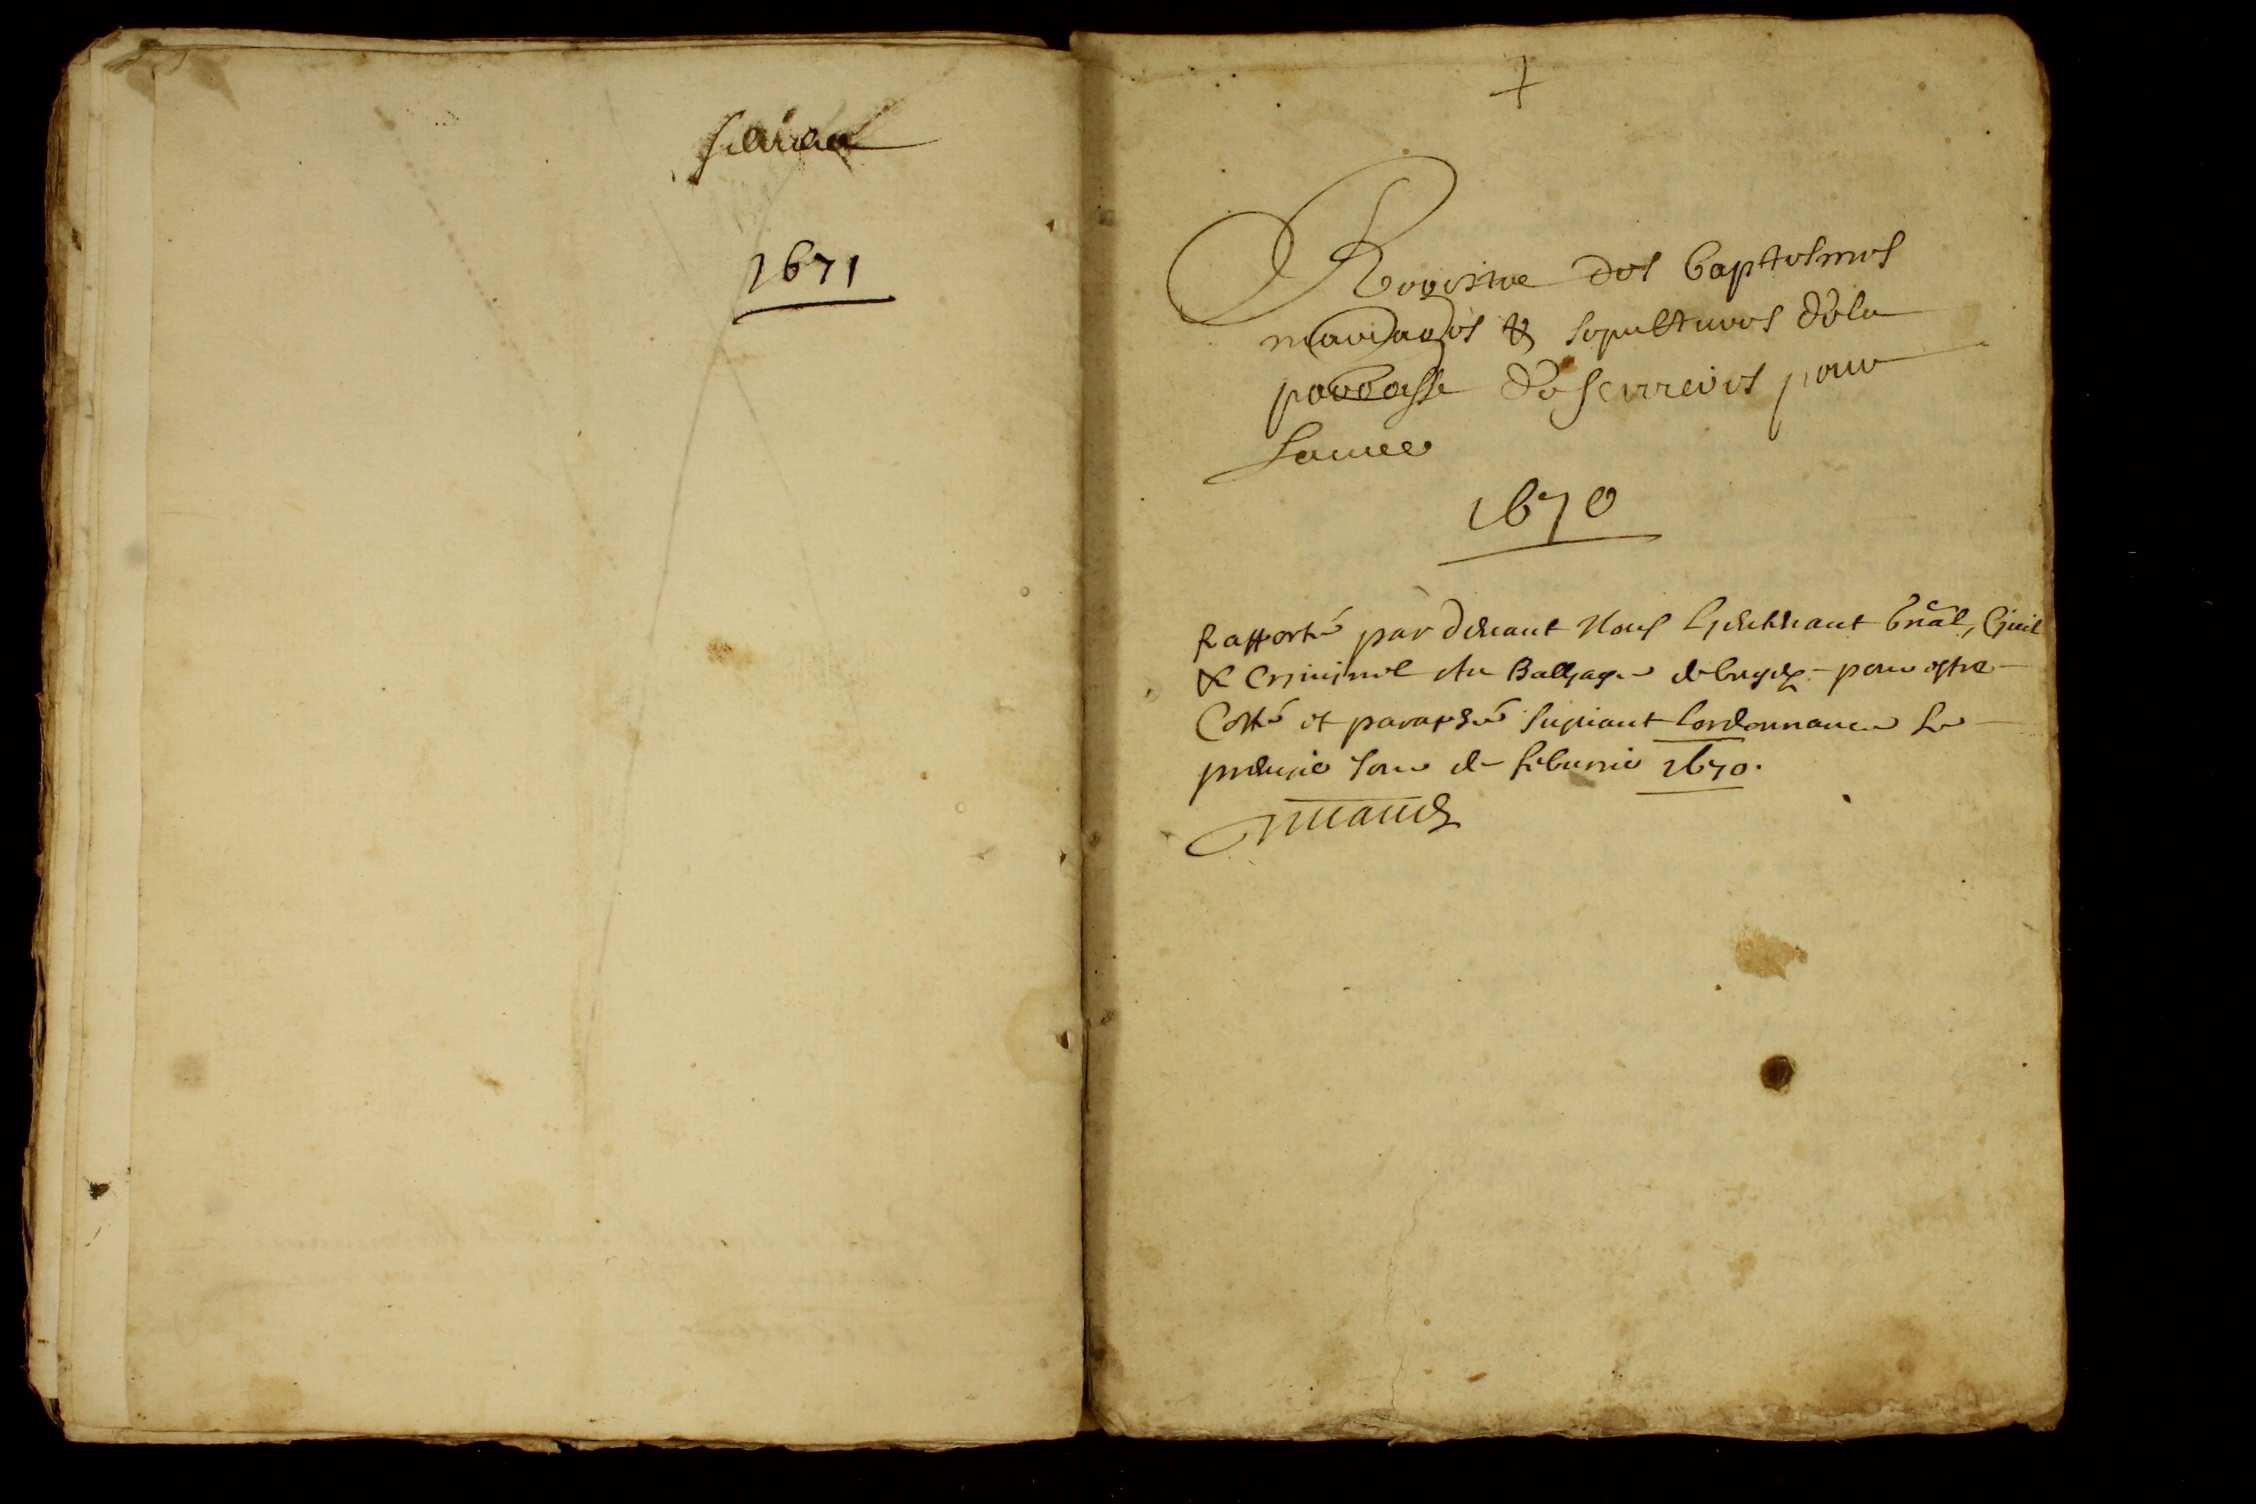 1671
+
Registre des baptesmes
mariages & sepultures de la
paroisse de pour
Lannee
1670
Rapporté par devant Nous Lieutenant gnãl, Civil
& Criminel Au Balliage de pour estre
Cotté et paraphé suyvant Lordonnance Le
premie Jour de febvrie 1670.